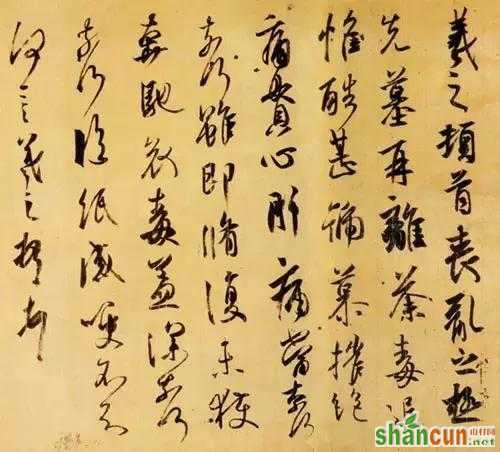 羲之頓首喪亂之極
先墓再離荼毒追
惟酷甚號慕摧絕
痛貫心肝痛當奈何
奈何雖即脩復未獲
奔馳哀毒益深奈何
奈何臨紙感哽不知
何言羲之頓首頓首
shancun
.net